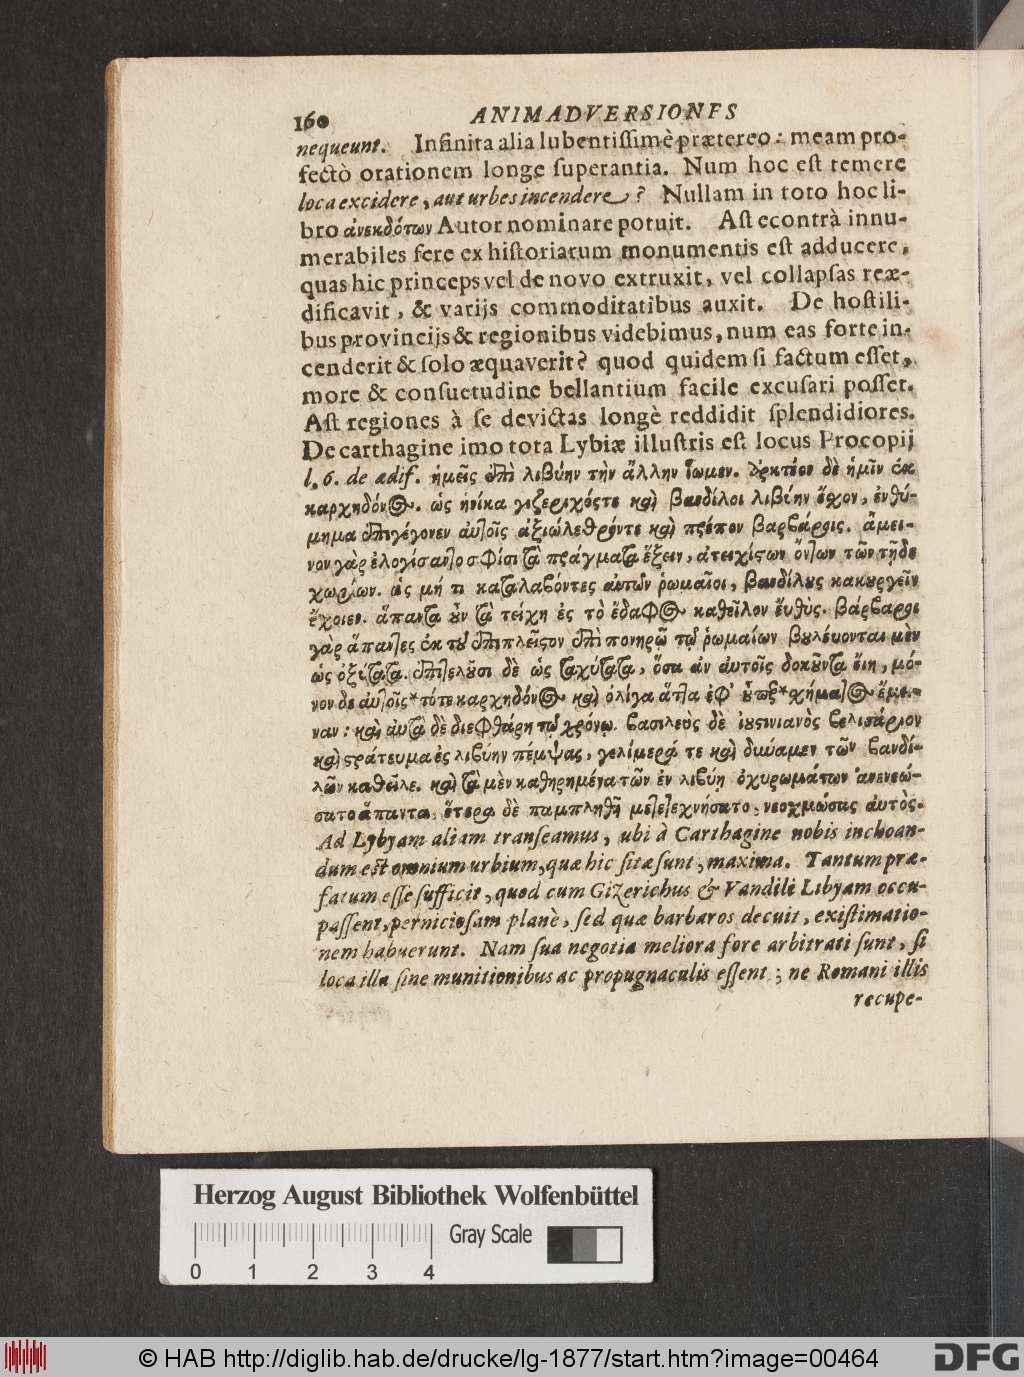 160 ANIMADVERSIONES
nequeunt. Infinita alia lubentissimè prætereo: meam pro-
fectò orationem longe superantia. Num hoc est temere
loca excidere, aut urbes incendere? Nullam in toto hoc li-
bro ἀνεκδότων Autor nominare potuit. Ast econtrà innu-
merabiles fere ex historiarum monumentis est adducere,
quas hic princeps vel de novo extruxit, vel collapsas reæ-
dificavit, & varijs commoditatibus auxit. De hostili-
bus provincijs & regionibus videbimus, num eas forte in-
cenderit & solo æquaverit? quod quidem si factum esset,
more & consuetudine bellantium facile excusari posset.
Ast regiones à se devictas longè reddidit splendidiores.
De carthagine imo tota Lybiæ illustris est locus Procopij
l. 6. de ædif. ἡμεῖς ἐπὶ λιβύην τὴν ἄλλην ἴωμεν. ἀρκτέον δὲ ἡμῖν ἐκ
καρχηδόνος. ὡς ἡνίκα γιζεριχόςτε καὶ βανδίλοι λιβύην ἔχον, ἐνθύ-
μημα ἐπιγέγονεν αὐτοῖς ἀξιώλεθρόντε καὶ πρέπον βαρβάροις. ἄμει-
νον γὰρ ἐλογίσαντο σφίσι τὰ πράγματα ἕξειν, ἀτειχίστων ὄντων τῶν τῇδε
χωρίων. ὡς μή τι καταλαβόντες αυτῶν ῥωμαῖοι, βανδίλους κακουργεῖν
ἔχοιεν. ἅπαντα οὖν τὰ τείχη ἐς τὸ ἔδαφος καθεῖλον ἔυθὺς. βάρβαροι
γὰρ ἅπαντες ἐκ τοῦ ἐπιπλεῖστον ἐπὶ πονηρῷ τῷ ῥωμαίων βουλέυονται μὲν
ὡς ὀξύτατα. ἐπιτελοῦσι δὲ ὡς ταχύτατα, ὅσα ἀν αυτοῖς δοκοῦντα ἔιη, μό-
νον δε αὐτοῖς* τότε καρχηδόνος καὶ ὀλίγα ἄττα ἐφ᾽ ὑπερ* χήματος ἔμει-
ναν: καὶ αυτὰ δὲ διεφθάρη τῷ χρόνῳ. βασιλεὺς δὲ ἰουστινιανὸς βελισάριον
καὶ στράτευμα ἐς λιβύην πέμψας, γελίμερά τε καὶ δύναμεν τῶν βανδί-
λῶν καθεῖλε. καὶ τὰ μὲν καθηρημένα τῶν ἐν λιβύῃ ὀχυρωμάτων ἀνενεώ-
σατο ἅπαντα, ἕτερα δὲ παμπληθῆ μετετεχνήσατο, νεοχμώσας αυτὸς.
Ad Lybyam aliam transeamus, ubi à Carthagine nobis inchoan-
dum est omnium urbium, quæ hic sitæ sunt, maxima. Tantum præ-
fatum esse sufficit, quod cum Gizerichus & Vandili Libyam occu-
passent, perniciosam planè, sed quæ barbaros decuit, existimatio-
nem habuerunt. Nam sua negotia meliora fore arbitrati sunt, si
loca illa sine munitionibus ac propugnaculis essent; ne Romani illis
recupe-
Herzog August Bibliothek Wolfenbüttel
Gray Scale
0 1 2 3 4
© HAB http://diglib.hab.de/drucke/lg-1877/start.htm?image=00464
DFG